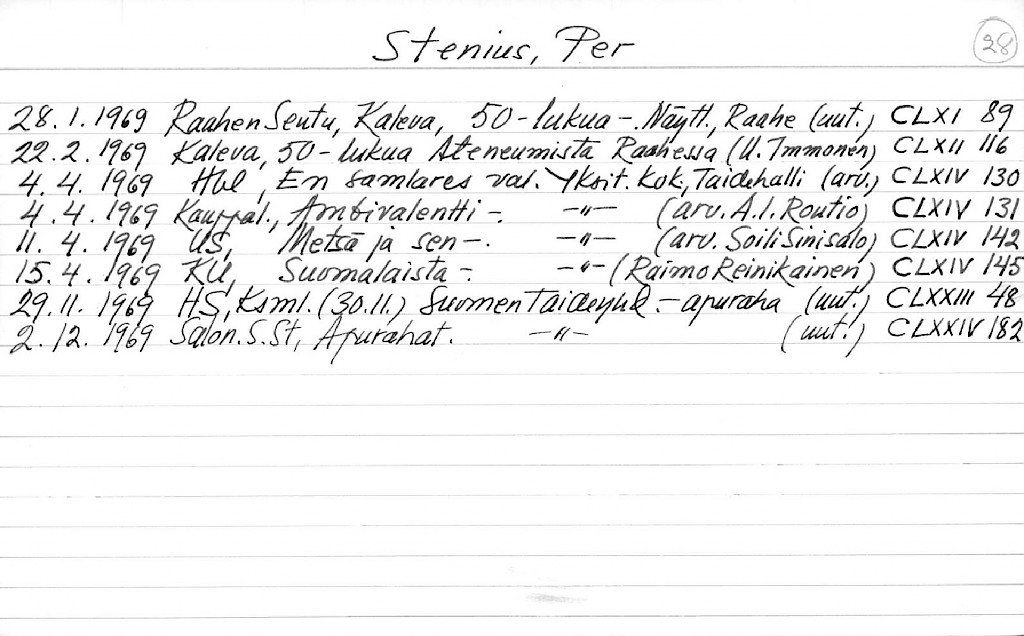 Stenius, Per 28
28.1.1969 Raahen Seutu, Kaleva, 50-lukua-. Näytt., Raahe (uut.) CLXI 89
22.2.1969 Kaleva, 50-lukua Ateneumista Raahessa (U. Immonen) CLXII 116
4.4.1969 Hbl, En samlares val. Yksit. Kok, Taidehalli (arv.) CLXIV 130
4.4.1969 Kauppal., Ambivalentti-. -"- (arv. A.I. Routio) CLXIV 131
11.4.1969 US, Metsä ja sen-. -"- (arv. Soili Sinisalo) CLXIV 142
15.4.1969 KU, Suomalaista-. -"- (Raimo Reinikainen) CLXIV 145
29.11.1969 HS, Ksml. (30.11.) Suomen Taideyhd.-apuraha (uut.) CLXXIII 48
2.12.1969 Salon.S.St, Apurahat. -"- (uut.) CLXXIV 182